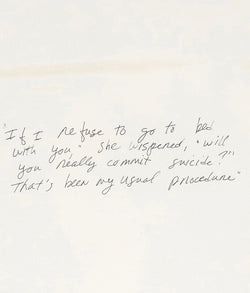 "If I refuse to go to bed
with you" she wispered, "will
you really commit suicide?"
That's been my usual procedure"